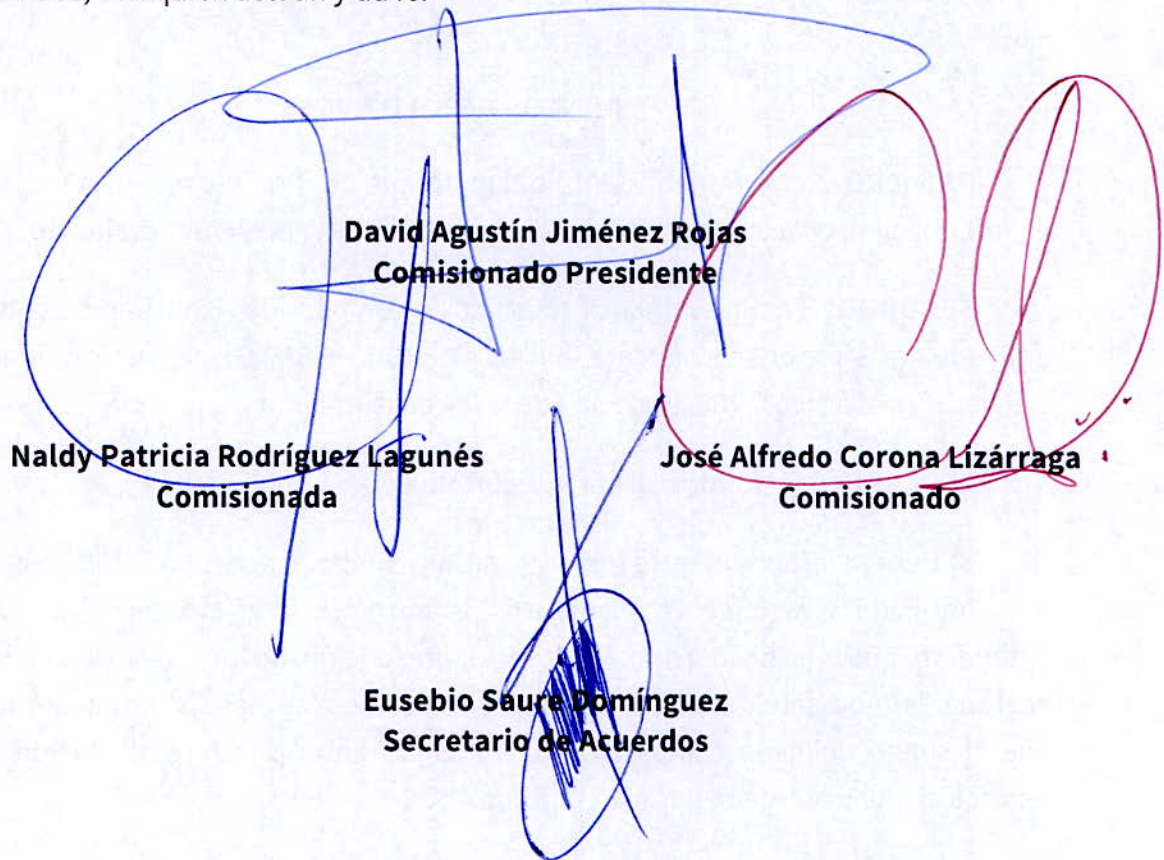 David Agustín Jiménez Rojas
Comisionado Presidente
Naldy Patricia Rodríguez Lagunés
Comisionada
José Alfredo Corona Lizárraga
Comisionado
Eusebio Saure Domínguez
Secretario de Acuerdos